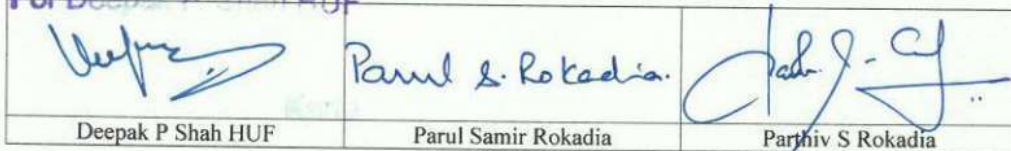 For Deepak P Shah HUF
Parul S. Rokadia.
Deepak P Shah HUF
Parul Samir Rokadia
Parthiv S Rokadia